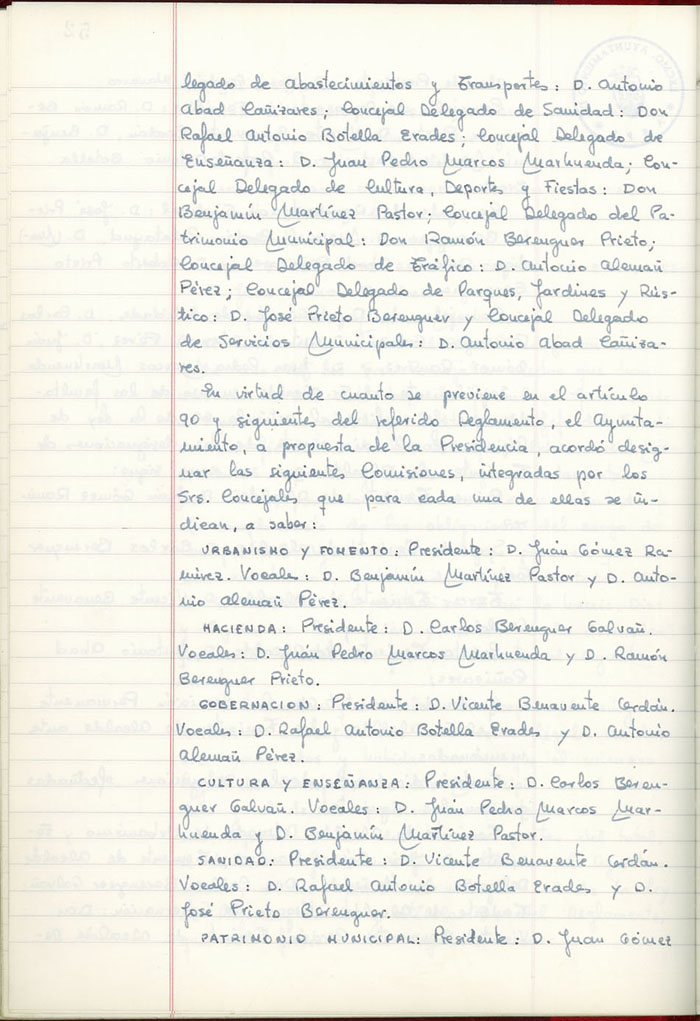 legado de Abastecimientos y Transportes: D. Antonio
Abad Cañizares; Concejal Delegado de Sanidad: Don
Rafael Antonio Botella Erades; Concejal Delegado de
Enseñanza: D. Juan Pedro Marcos Marhuenda; Con-
cejal Delegado de Cultura, Deportes y Fiestas: Don
Benjamín Martínez Pastor; Concejal Delegado del Pa-
trimonio Municipal: Don Ramón Berenguer Prieto;
Concejal Delegado de Tráfico: D. Antonio Alemañ
Pérez; Concejal Delegado de Parques, Jardines y Rús-
tico: D. José Prieto Berenguer y Concejal Delegado
de Servicios Municipales: D. Antonio Abad Cañiza-
res.
En virtud de cuanto se previene en el artículo
90 y siguientes del referido Reglamento, el Ayunta-
miento, a propuesta de la Presidencia, acordó desig-
nar las siguientes Comisiones, integradas por los
Srs. Concejales que para cada una de ellas se in-
dican, a saber:
URBANISMO Y FOMENTO: Presidente: D. Juan Gómez Ra-
mírez. Vocales: D. Benjamín Martínez Pastor y D. Anto-
nio Alemañ Pérez.
HACIENDA: Presidente: D. Carlos Berenguer Galvañ.
Vocales: D. Juan Pedro Marcos Marhuenda y D. Ramón
Berenguer Prieto.
GOBERNACION: Presidente: D. Vicente Benavente Cerdán.
Vocales: D. Rafael Antonio Botella Erades y D. Antonio
Alemañ Pérez.
CULTURA Y ENSEÑANZA: Presidente: D. Carlos Beren-
guer Galvañ. Vocales: D. Juan Pedro Marcos Mar-
huenda y D. Benjamín Martínez Pastor.
SANIDAD: Presidente: D. Vicente Benavente Cerdán.
Vocales: D. Rafael Antonio Botella Erades y D.
José Prieto Berenguer.
PATRIMONIO MUNICIPAL: Presidente: D. Juan Gómez